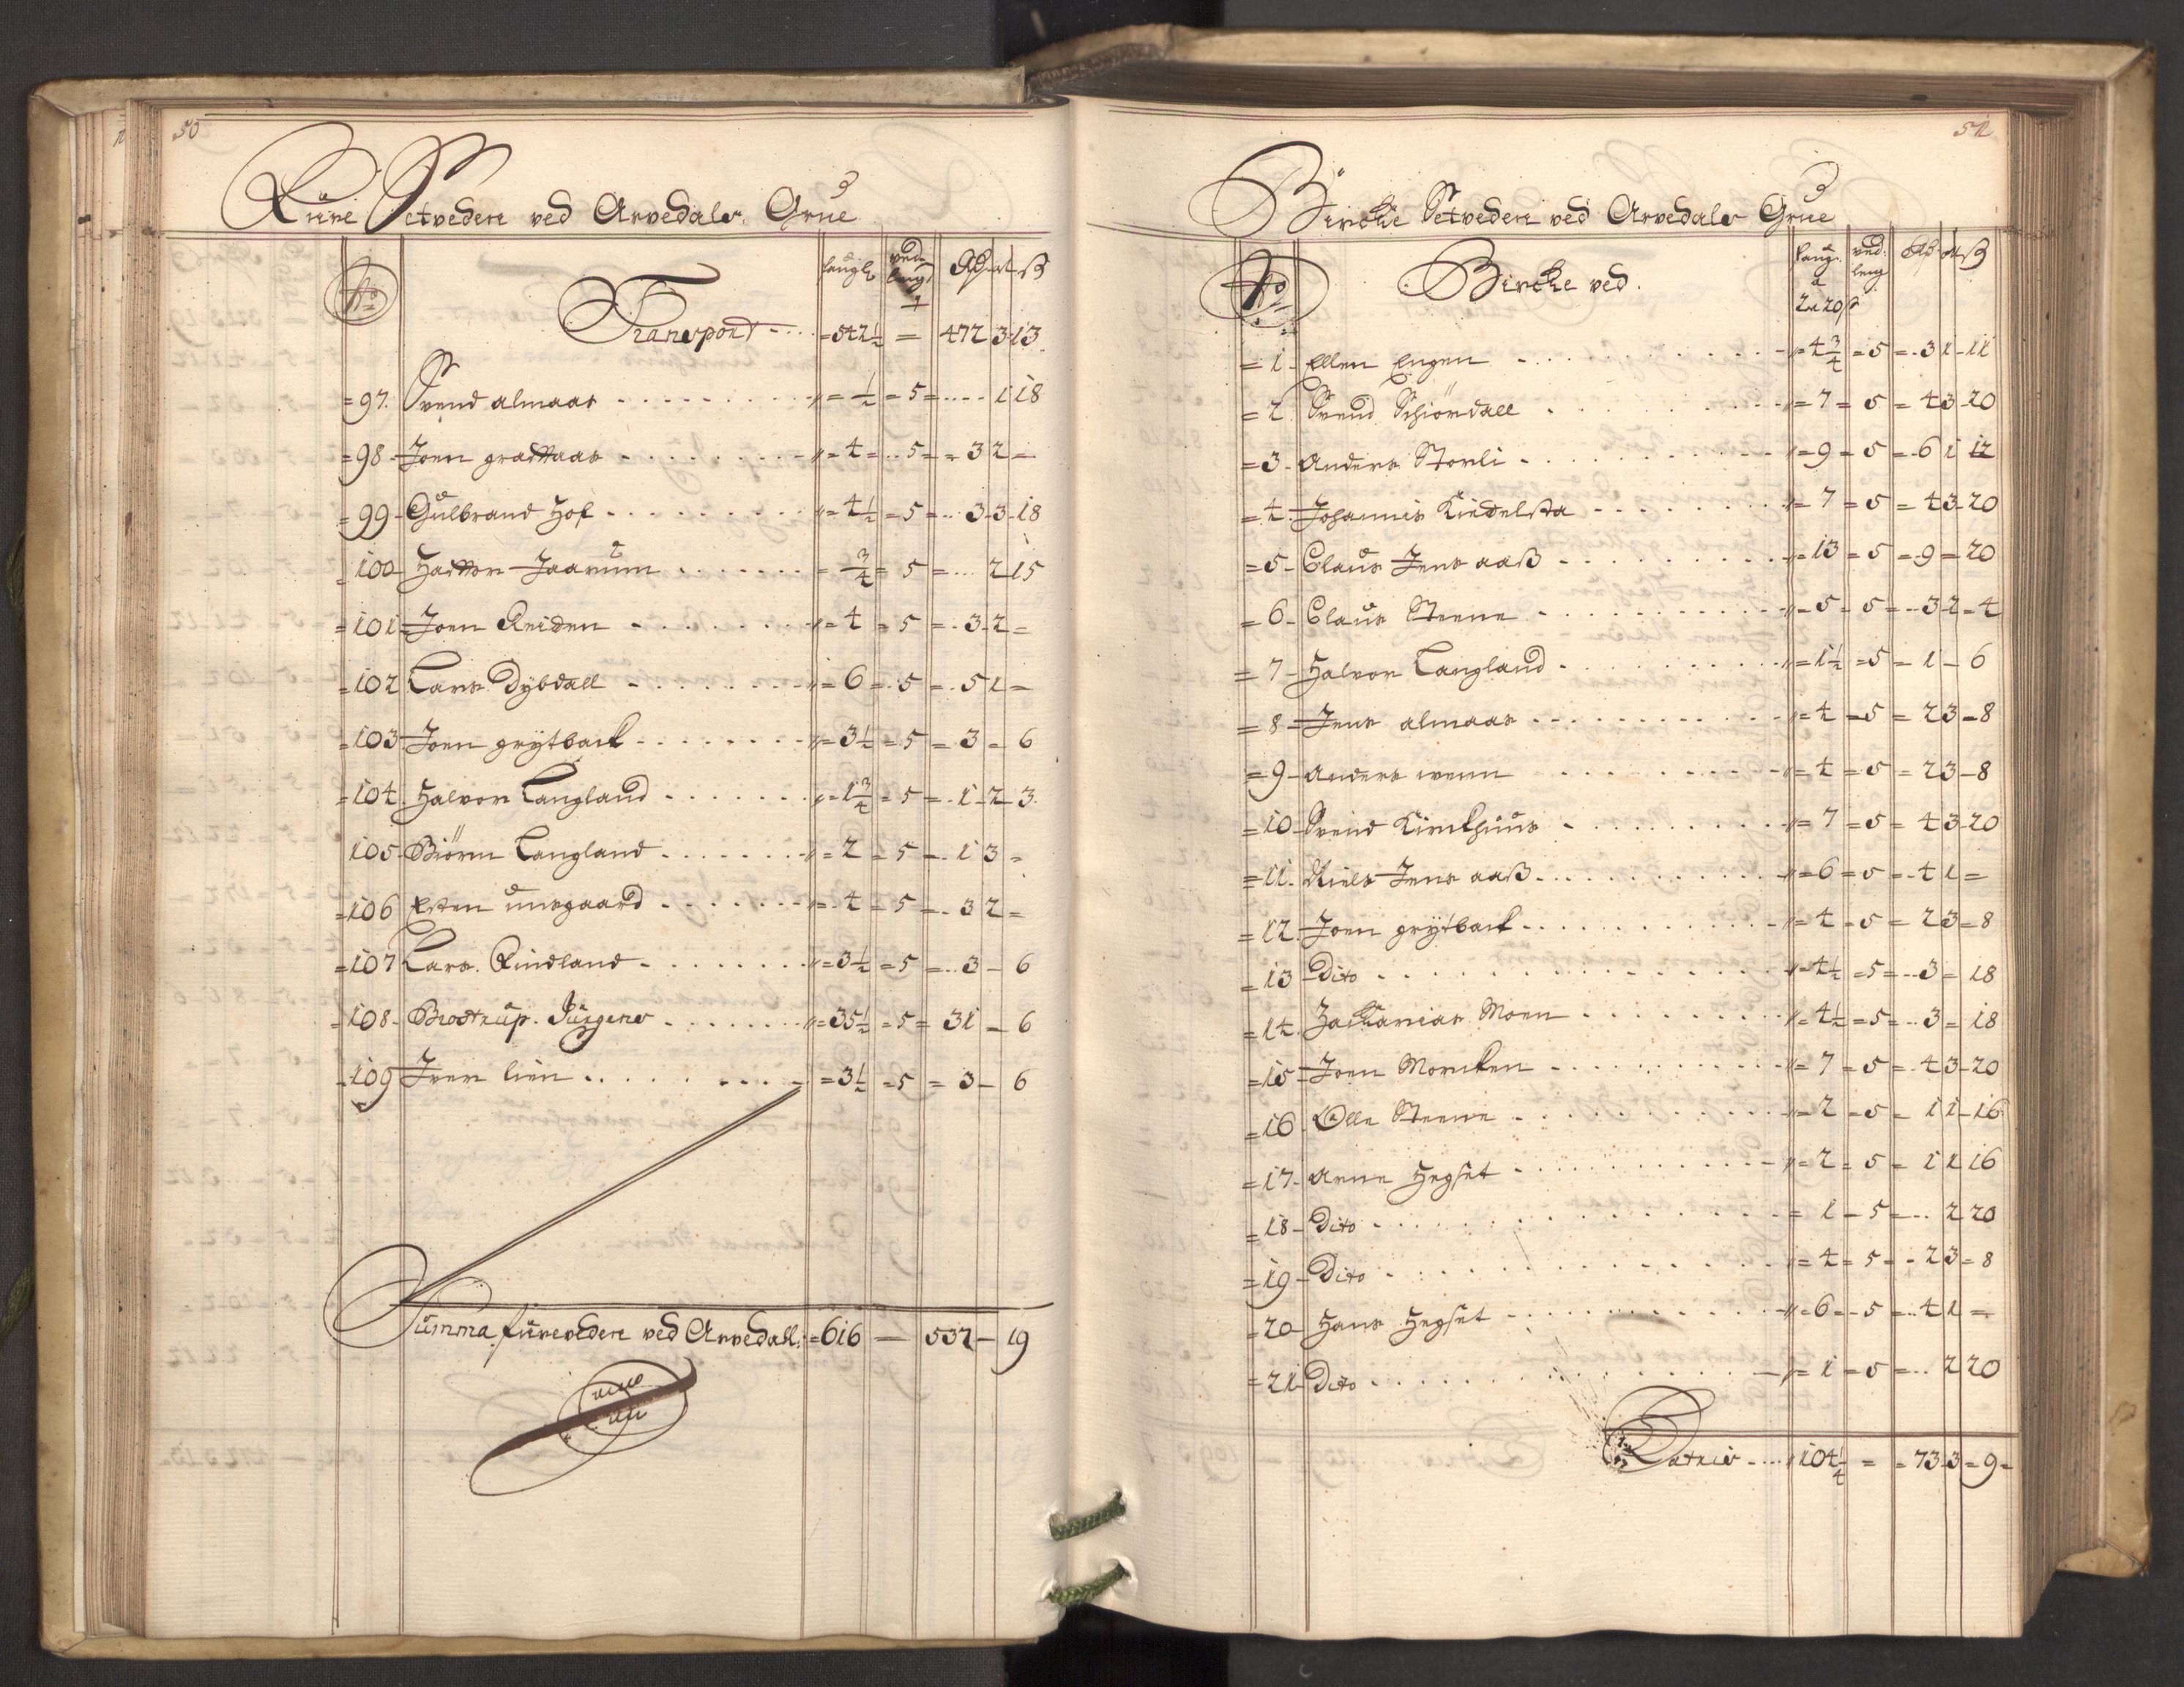 50
Füre Setvedere ved Arvedals Grue
No
laugh
ved leng
Rd M ß
Transport = 542½ = 472 3 13
= 97. Svend almaas = ½ = 5 = 1 18
= 98 Joen graattaas = 4 = 5 = 3 2 =
= 99 Gulbrand Hof = 4½ = 5 = 3 3 18
= 100 Jaarum = ¾ = 5 = 2 15
= 101 Joen Reiden = 4 = 5 = 3 2 =
= 102 Lars Dybdall = 6 = 5 = 5 1 =
= 103 Joen grytback = 3½ = 5 = 3 = 6
= 104. Halvor Langland = 1¾ = 5 = 1 2 3
105 Biörn Langland = 2 = 5 = 1 3 =
= 106 Esten unsgaard = 4 = 5 = 3 2 =
= 107 Lars Rindland = 3½ = 5 = 3 - 6
= 108 Brostrup Jürgens = 35½ = 5 = 31 - 6
= 109 Iver lien = 3½ = 5 = 3 - 6
Summa furevedere ved Arvedall: = 616 - 532 - 19
51
Bircke Setvedere ved Arvedals Grue
No
Bircke ved.
laug. a 2 M 20 ß
ved leng
Rd M ß
= 1 - Ellen Engen = 4¾ = 5 = 3 1 - 11
= 2. Svend Schiördall = 7 = 5 = 4 3 - 20
= 3 - Anders Storli = 9 = 5 = 6 1 12
= 4. Johannis Kiedelsta = 7 = 5 = 4 3 - 20
= 5 - Claus Jens aaß = 13 = 5 = 9 = 20
= 6 - Claus Steene = 5 = 5 = 3 2 = 4
= 7 - Halvor Langland = 1½ = 5 = 1 - 6
= 8 - Jens almaas = 4 = 5 = 2 3 = 8
= 9 - Anders wenn = 4 = 5 = 2 3 - 8
= 10 - Svend Kirckhuus = 7 = 5 = 4 3 - 20
= 11. Niels Jens aaß = 6 = 5 = 4 1 =
= 12. Joen grytback = 4 = 5 = 2 3 = 8
= 13 Dito = 4½ = 5 = 3 = 18
= 14. Zackarias Moen = 4½ = 5 = 3 = 18
= 15 - Joen Morcken = 7 = 5 = 4 3 - 20
= 16 Olle Steene = 2 = 5 = 1 1 - 16
= 17 - Arne Hegset = 2 = 5 = 1 1 16
= 18 - Dito = 1 - 5 = 2 20
= 19 - Dito = 4 = 5 = 2 3 = 8
= 20 Hans Hegset = 6 = 5 = 4 1 =
= 21 Dito = 1 = 5 = 2 20
Latris 104¼ = = 73 3 = 9 =